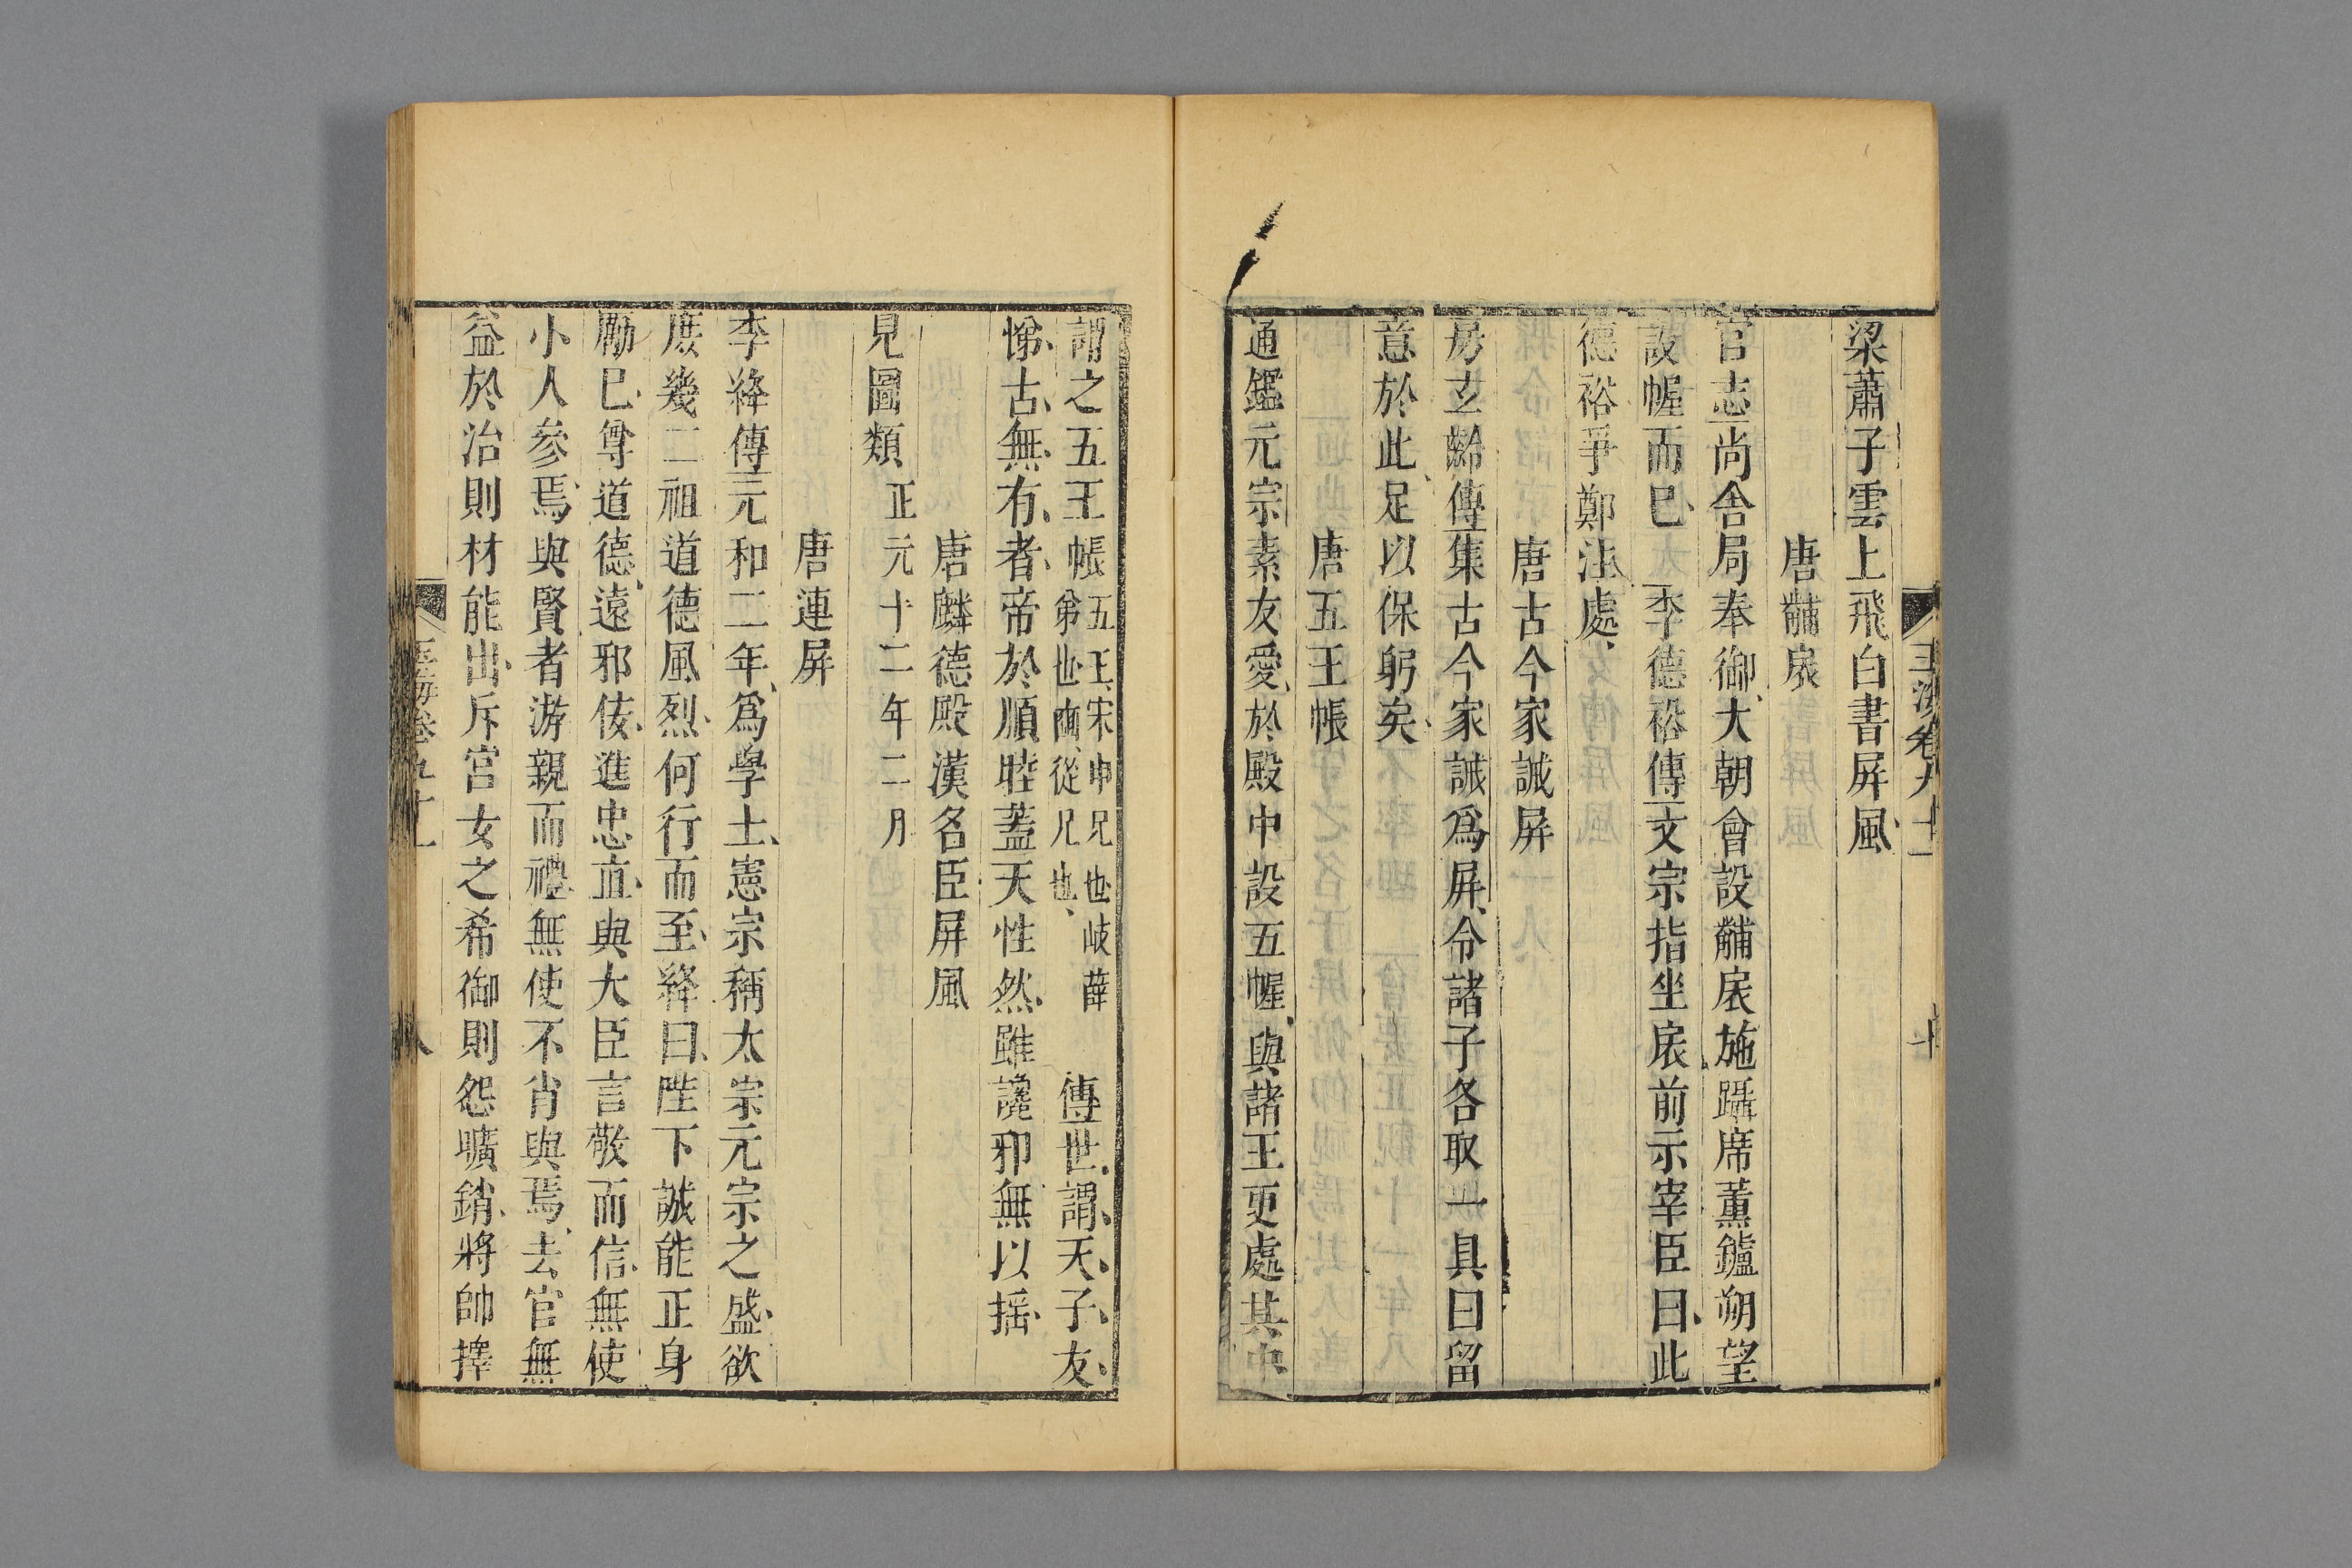 玉海卷九十一
梁蕭子雲上飛白書屏風
唐黼扆
官志尚舍局奉御大朝會設黼扆施躡席薰鑪朔望
設幄而已 李德裕傳文宗指坐扆前示宰臣曰此
德裕爭鄭注處
唐古今家誡屏
房玄齡傳集古今家誡爲屏令諸子各取一具曰留
意於此足以保躬矣
唐五王帳
通鑑元宗素友愛於殿中設五幄與諸王更處其中
謂之五王帳五王宋申兄也岐薛弟也豳從兄也 傳世謂天子友
悌古無有者帝於順睦蓋天性然雖讒邪無以揺
唐麟德殿漢名臣屏風
見圖類正元十二年二月
唐連屏
李絳傳元和二年爲學士憲宗稱太宗元宗之盛欲
庶幾二祖道德風烈何行而至絳曰陛下誠能正身
勵已尊道德遠邪佞進忠直與大臣言敬而信無使
小人參焉與賢者游親而禮無使不肖與焉去官無
益於治則材能出斥宮女之希御則怨曠銷將帥擇
玉海卷九十一
八